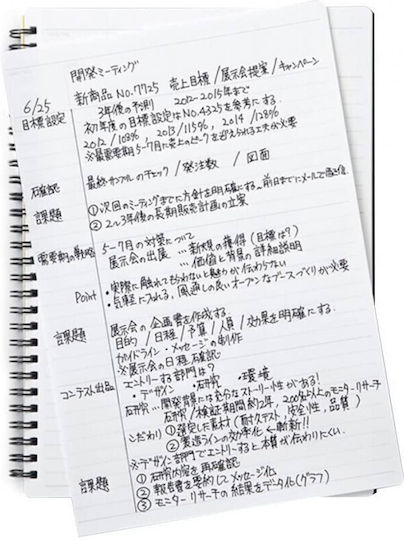 開発ミーティング
6/25 新商品No.7725 売上目標/展示会提案/キャンペーン
目標設定 3年後の予測 2012~2015年まで
初年度の目標設定はNo.4325を参考にする
2012/103%, 2013/115%, 2014/128%
※最需要期5~7月に売上のピークを迎えられる工夫が必要
確認 最終サンプルのチェック/発注数/図面
課題 ①次回のミーティングまでに方針を明確にする。前日までにメールで配信。
②2~3年後の長期販売計画の立案
需要期の戦略 5~7月の対策について
展示会の出展 …新規の獲得(目標は?)
…価値と背景の詳細説明
Point ・実際に触れてもらわないと魅力が伝わらない
・気軽に入れる、風通しの良いオープンなブースづくりが必要
課題 展示会の企画書を作成する
目的/日程/予算/人員/効果を明確にする。
ガイドライン・メッセージの制作
※展示会の日程確認
コンテスト出品 エントリーする部門は?
・デザイン ・研究 ・環境
研究…開発背景には充分なストーリー性がある!
研究/検証期間約2年、200名以上のモニターリサーチ
こだわり ①選定した素材(耐久テスト、安全性、品質)
②製造ラインの効率化 ←斬新!!
※デザイン部門でエントリーすると本質が伝わりにくい。
課題 ①研究内容を再確認
②報告書を要約しメッセージ化
③モニターリサーチの結果をデータ化(グラフ)